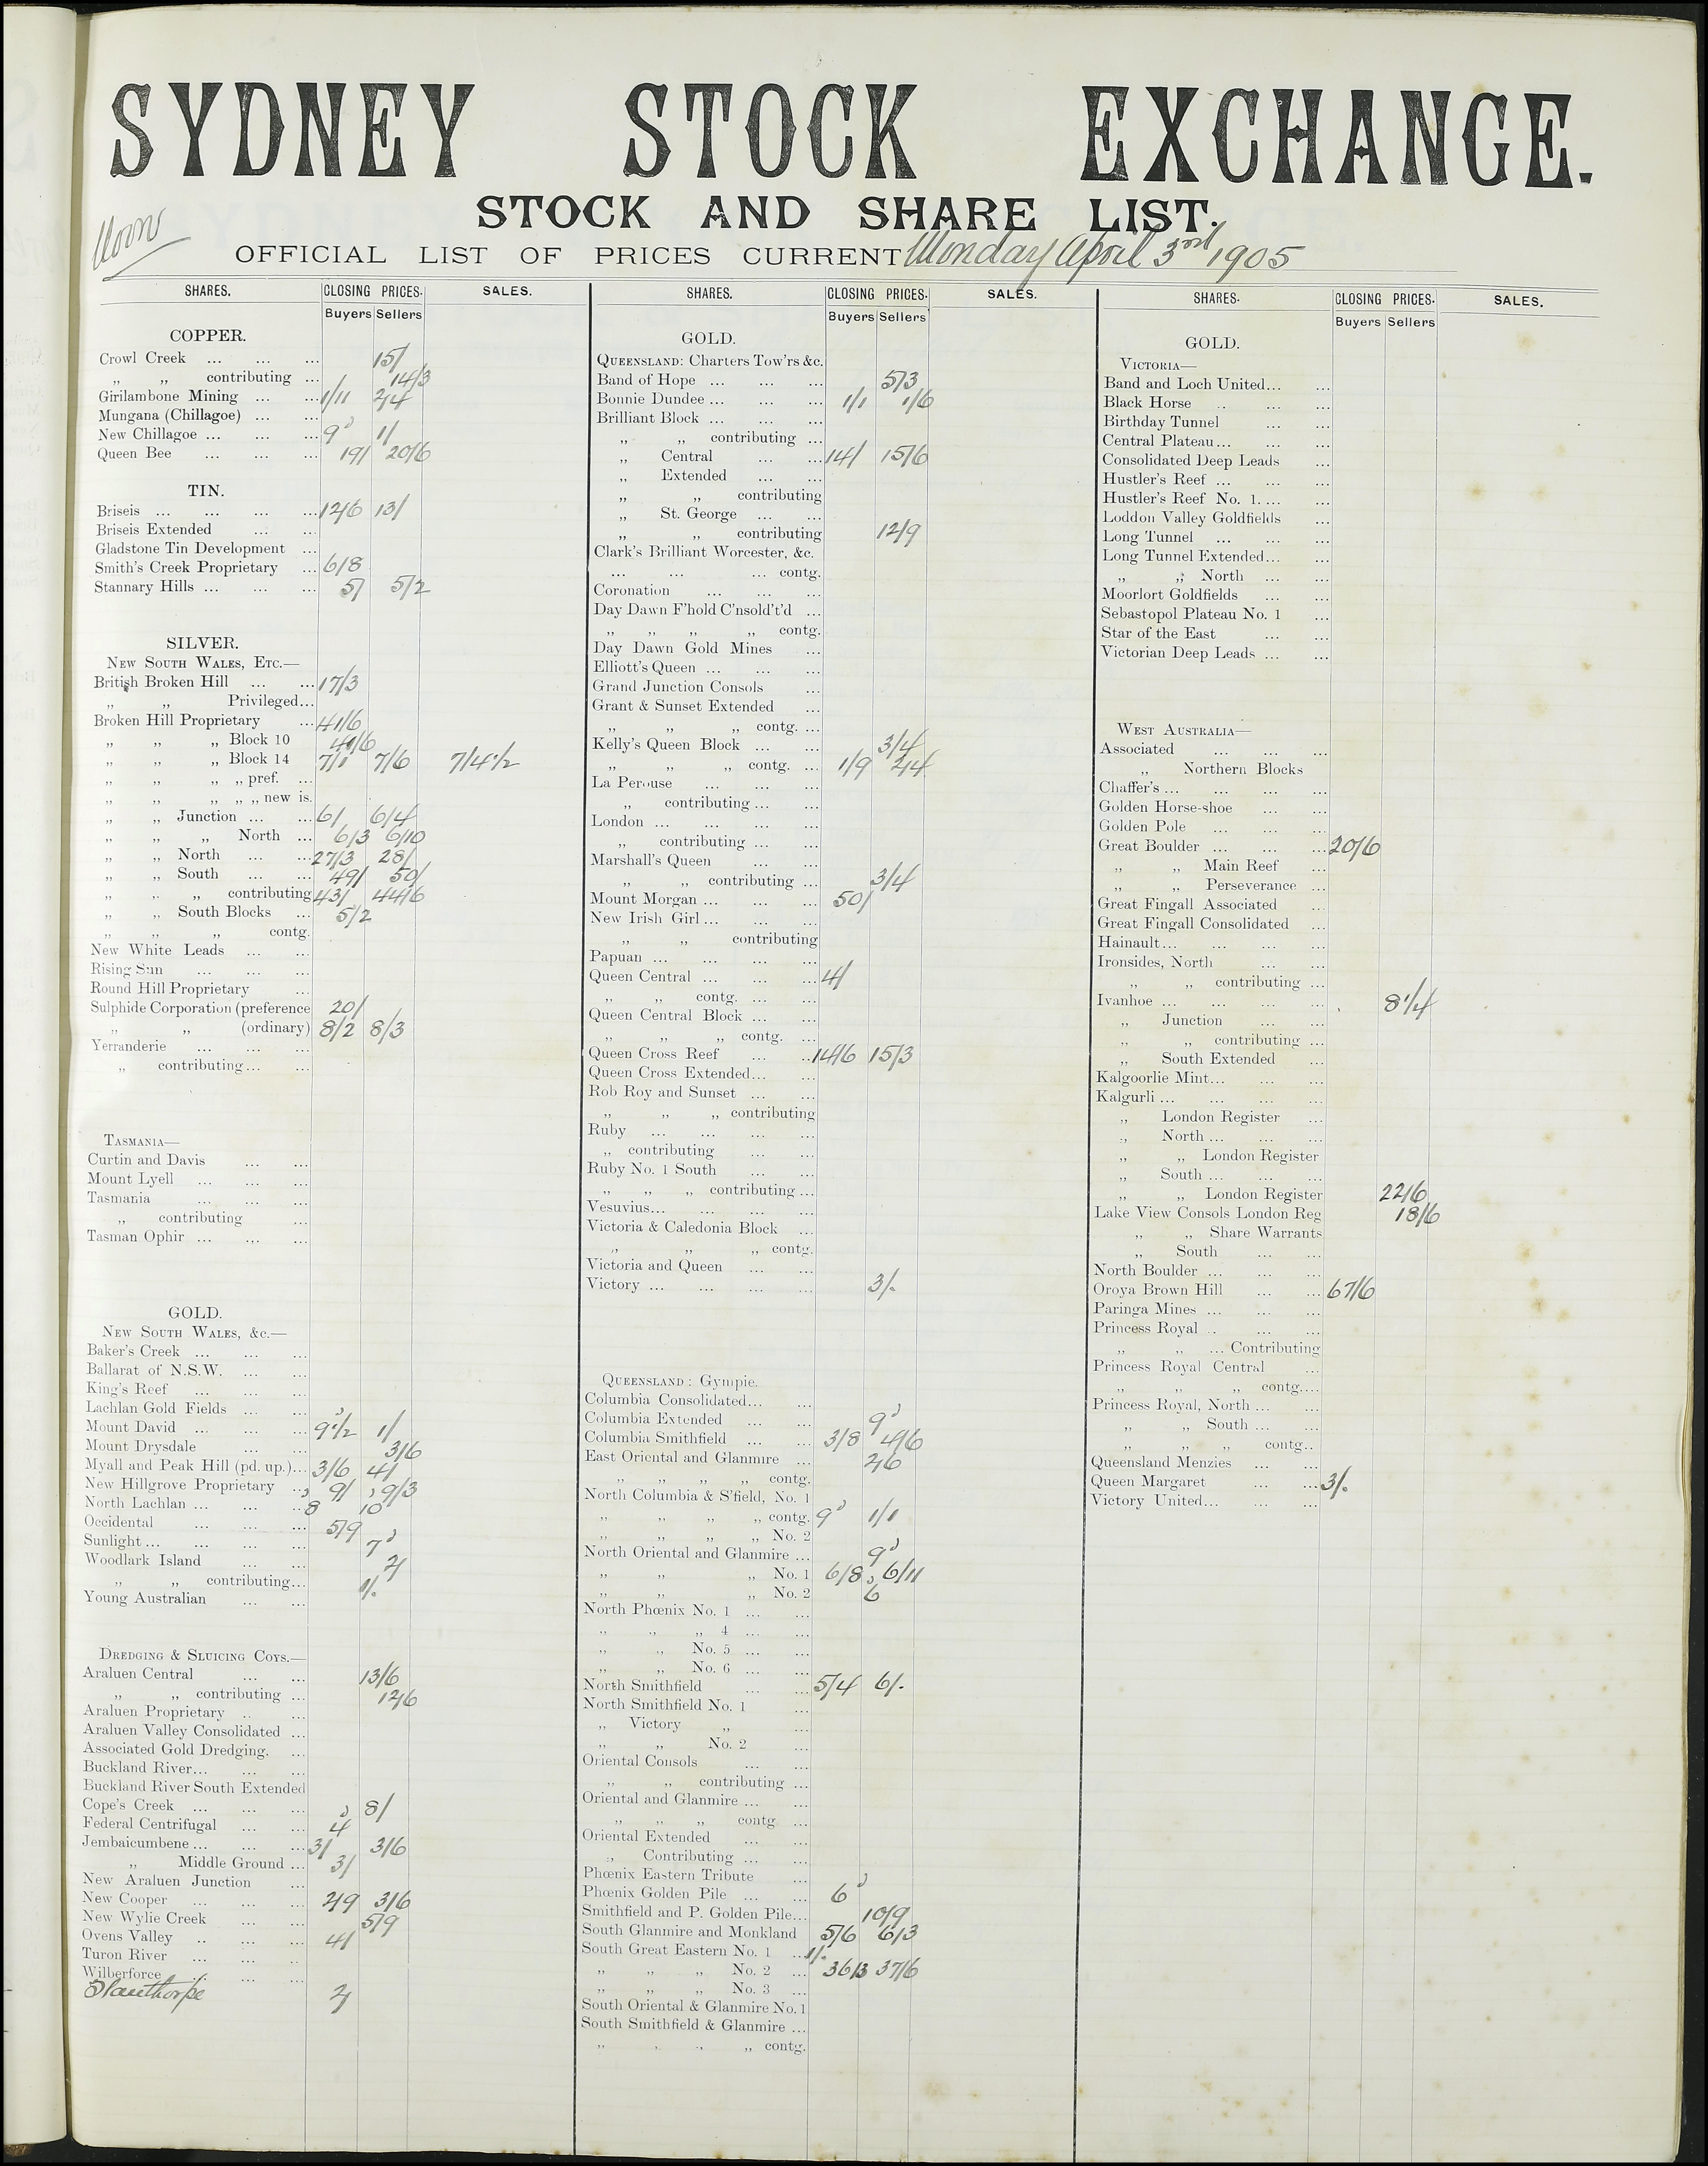 SYDNEY STOCK EXCHANGE.
STOCK AND SHARE LIST.
Noon
OFFICIAL LIST OF PRICES CURRENT Monday April 3rd 1905
SHARES. CLOSING PRICES. SALES.
Buyers Sellers
COPPER.
Crowl Creek ... ... ... 15/
„ „ contributing ... 14/3
Girilambone Mining ... ... 1/11 2/4
Mungana (Chillagoe) ... ...
New Chillagoe ... ... ... 9d 1/
Queen Bee ... ... ... 19/ 20/6
TIN.
Briseis ... ... ... ... 12/6 13/
Briseis Extended ... ...
Gladstone Tin Development ...
Smith's Creek Proprietary ... 6/8
Stannary Hills ... ... ... 5/ 5/2
SILVER.
NEW SOUTH WALES, ETC.—
British Broken Hill ... ... 17/3
„ „ Privileged...
Broken Hill Proprietary ... 41/6
„ „ „ Block 10 40/6
„ „ „ Block 14 7/1 7/6 7/4½
„ „ „ „ pref. ...
„ „ „ „ „ new is.
„ „ Junction ... ... 6/ 6/4
„ „ „ North ... 6/3 6/10
„ „ North ... ... 27/3 28/
„ „ South ... ... 49/ 50/
„ „ „ contributing 43/ 44/6
„ „ South Blocks ... 5/2
„ „ „ contg.
New White Leads ... ...
Rising Sun ... ... ...
Round Hill Proprietary ...
Sulphide Corporation (preference 20/
„ „ (ordinary) 8/2 8/3
Yerranderie ... ... ...
„ contributing... ...
TASMANIA—
Curtin and Davis ... ...
Mount Lyell ... ... ...
Tasmania ... ... ...
„ contributing ...
Tasman Ophir ... ... ...
GOLD.
NEW SOUTH WALES, &c.—
Baker's Creek ... ... ...
Ballarat of N.S.W. ... ...
King's Reef ... ... ...
Lachlan Gold Fields ... ...
Mount David ... ... ... 9½d 1/
Mount Drysdale ... ... 3/6
Myall and Peak Hill (pd. up.)... 3/6 4/
New Hillgrove Proprietary ... 9/ 9/3
North Lachlan ... ... ... 8d 10d
Occidental ... ... ... 5/9
Sunlight ... ... ... ... 7d
Woodlark Island ... ... 2/
„ „ contributing... 1/.
Young Australian ... ...
DREDGING & SLUICING COYS.—
Araluen Central ... ... 13/6
„ „ contributing ... 12/6
Araluen Proprietary .. ...
Araluen Valley Consolidated ...
Associated Gold Dredging. ...
Buckland River... ... ...
Buckland River South Extended
Cope's Creek ... ... ... 8/
Federal Centrifugal ... ... 4d
Jembaicumbene ... ... ... 3/ 3/6
„ Middle Ground ... 3/
New Araluen Junction ...
New Cooper ... ... ... 2/9 3/6
New Wylie Creek ... ... 5/9
Ovens Valley .. ... ... 4/
Turon River ... ... ..
Wilberforce ... ... ...
2/
SHARES. CLOSING PRICES. SALES.
Buyers Sellers
GOLD.
QUEENSLAND: Charters Tow'rs &c.
Band of Hope ... ... ... 5/3
Bonnie Dundee ... ... ... 1/1 1/6
Brilliant Block ... ... ...
„ „ contributing ...
„ Central ... ... 14/ 15/6
„ Extended ... ...
„ „ contributing
„ St. George ... ...
„ „ contributing 12/9
Clark's Brilliant Worcester, &c.
... ... ... contg.
Coronation ... ... ...
Day Dawn F'hold C'nsold't'd ...
„ „ „ „ contg.
Day Dawn Gold Mines ...
Elliott's Queen ... ... ...
Grand Junction Consols ...
Grant & Sunset Extended ...
„ „ „ contg. ...
Kelly's Queen Block ... ... 3/4
„ „ „ contg. ... 1/9 2/4
La Perouse ... ... ...
„ contributing ... ...
London ... ... ... ...
„ contributing ... ...
Marshall's Queen ... ...
„ „ contributing ... 3/4
Mount Morgan ... ... ... 50/
New Irish Girl ... ... ...
„ „ contributing
Papuan ... ... ... ...
Queen Central ... ... ... 4/
„ „ contg. ... ...
Queen Central Block ... ...
„ „ „ contg. ...
Queen Cross Reef ... ... 14/6 15/3
Queen Cross Extended... ...
Rob Roy and Sunset ... ...
„ „ „ contributing
Ruby ... ... ... ...
„ contributing ... ...
Ruby No. 1 South ... ...
„ „ „ contributing ...
Vesuvius... ... ... ...
Victoria & Caledonia Block ...
„ „ „ contg.
Victoria and Queen ... ...
Victory ... ... ... ... 3/.
QUEENSLAND: Gympie.
Columbia Consolidated... ...
Columbia Extended ... ... 9d
Columbia Smithfield ... ... 3/8 4/6
East Oriental and Glanmire ... 2/6
„ „ „ „ contg.
North Columbia & S'field, No. 1
„ „ „ „ contg. 9d 1/1
„ „ „ „ No. 2
North Oriental and Glanmire ... 9d
„ „ „ No. 1 6/8 6/11
„ „ „ No. 2 6d
North Phœnix No. 1 ... ...
„ „ „ 4 ... ...
„ „ No. 5 ... ...
„ „ No. 6 ... ...
North Smithfield ... ... 5/4 6/.
North Smithfield No. 1 ...
„ Victory „ ...
„ „ No. 2 ...
Oriental Consols ... ...
„ „ contributing ...
Oriental and Glanmire ... ...
„ „ „ contg ...
Oriental Extended ... ...
„ Contributing ... ...
Phœnix Eastern Tribute ...
Phœnix Golden Pile ... ... 6d
Smithfield and P. Golden Pile... 10/9
South Glanmire and Monkland 5/6 6/3
South Great Eastern No. 1 ... 1/.
„ „ „ No. 2 ... 36/3 37/6
„ „ „ No. 3 ...
South Oriental & Glanmire No. 1
South Smithfield & Glanmire ...
„ „ „ „ contg.
SHARES. CLOSING PRICES. SALES.
Buyers Sellers
GOLD.
VICTORIA—
Band and Loch United... ...
Black Horse .. ... ...
Birthday Tunnel ... ...
Central Plateau... ... ...
Consolidated Deep Leads ...
Hustler's Reef ... ... ...
Hustler's Reef No. 1. ... ...
Loddon Valley Goldfields ...
Long Tunnel ... ... ...
Long Tunnel Extended... ...
„ „ North ... ...
Moorlort Goldfields ... ...
Sebastopol Plateau No. 1 ...
Star of the East ... ...
Victorian Deep Leads ... ...
WEST AUSTRALIA—
Associated ... ... ...
„ Northern Blocks
Chaffer's ... ... ... ...
Golden Horse-shoe ... ...
Golden Pole ... ... ...
Great Boulder ... ... ... 20/6
„ „ Main Reef ...
„ „ Perseverance ...
Great Fingall Associated ...
Great Fingall Consolidated ...
Hainault... ... ... ...
Ironsides, North ... ...
„ „ contributing ...
Ivanhoe ... ... ... ... 8¼
„ Junction ... ...
„ „ contributing ...
„ South Extended ...
Kalgoorlie Mint... ... ...
Kalgurli ... ... ... ...
„ London Register ...
„ North ... ... ...
„ „ London Register
„ South ... ... ...
„ „ London Register 22/6
Lake View Consols London Reg 18/6
„ „ Share Warrants
„ South ... ...
North Boulder ... ... ...
Oroya Brown Hill ... ... 67/6
Paringa Mines ... ... ...
Princess Royal .. ... ...
„ „ ... Contributing
Princess Royal Central ...
„ „ „ contg....
Princess Royal, North ... ...
„ „ South ... ...
„ „ „ contg..
Queensland Menzies ... ...
Queen Margaret ... ... 3/.
Victory United... ... ...